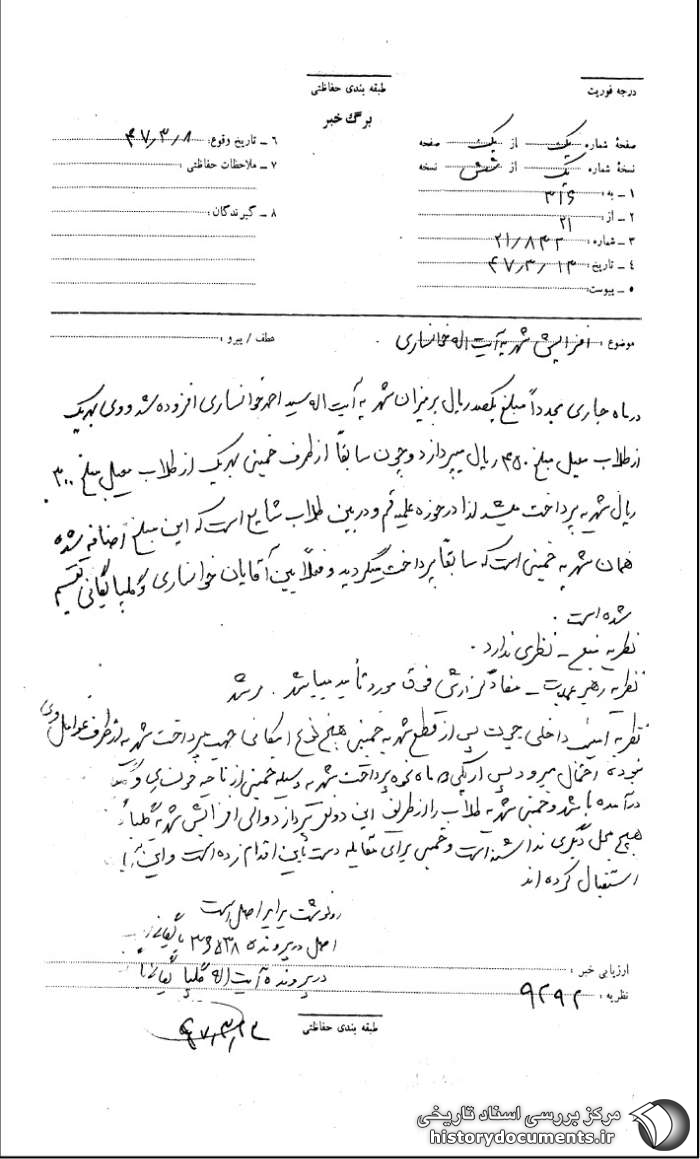 درجه فوریت
طبقه بندی حفاظتی
برگ خبر
صفحهٔ شماره یک از یک صفحه
نسخهٔ شماره یک از شش نسخه
۱ – به: ۳۱۶
۲ – از: ۲۱
۳ – شماره: ۲۱/۸۴۲
٤ – تاریخ: ۴۷/۳/۱۳
۵ – پیوست:
۶ – تاریخ وقوع: ۴۷/۳/۸
۷ – ملاحظات حفاظتی:
۸ – گیرندگان:
موضوع: افزایش شهریه آیت اله خوانساری
عطف / پیرو:
در ماه جاری مجدداً مبلغ یکصد ریال بر میزان شهریه آیت اله سید احمد خوانساری افزوده شد و وی بهر یک
از طلاب معیل مبلغ ۴۵۰ ریال میپردازد و چون سابقاً از طرف خمینی بهر یک از طلاب معیل مبلغ ۳۰۰
ریال شهریه پرداخت میشد لذا در حوزه علمیه قم و در بین طلاب شایع است که این مبلغ اضافه شده
همان شهریه خمینی است که سابقاً پرداخت میگردید و فعلاً بین آقایان خوانساری و گلپایگانی تقسیم
شده است.
نظریه منبع – نظری ندارد.
نظریه رهبر عملیات – مفاد گزارش فوق مورد تأیید میباشد. مرشد
نظریه امنیت داخلی چون پس از قطع شهریه خمینی هیچ نوع امکانی جهت پرداخت شهریه از طرف عوامل وی
نبوده احتمال میرود پس از یکی ماه نحوه پرداخت شهریه بوسیله خمینی از ناحیه
درآمده باشد و خمینی شهریه طلاب را از طریق این دو نفر بپردازد و الی افزایش شهریه
هیچ محل دیگری نداشته است و خمینی برای مقابله دست باین اقدام زده است و این
استقبال کرده اند
رونوشت برابر اصل است
اصل در پرونده ۳۶۵۳۸
ارزیابی خبر:
در پرونده آیت اله گلپایگانی
نظریه: ۹۲۹۲
طبقه بندی حفاظتی
مرکز بررسی اسناد تاریخی
historydocuments.ir